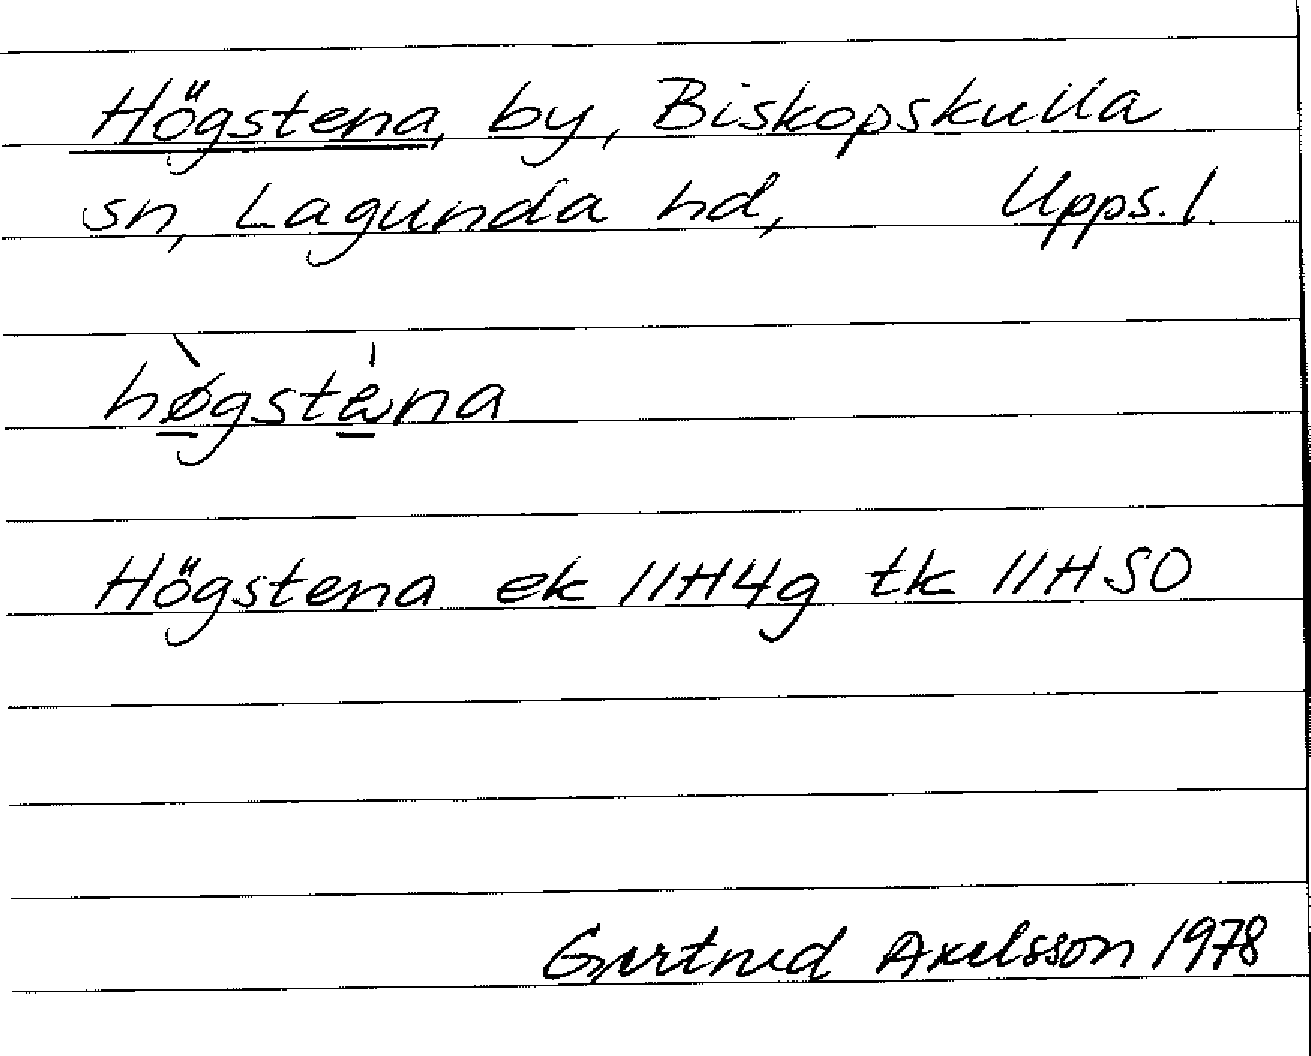 Högstena, by, Biskopskulla
sn, Lagunda hd, Upps. l.
hø̀gstèna
Högstena ek 11H4g tk 11HSO
Gertrud Axelsson 1978